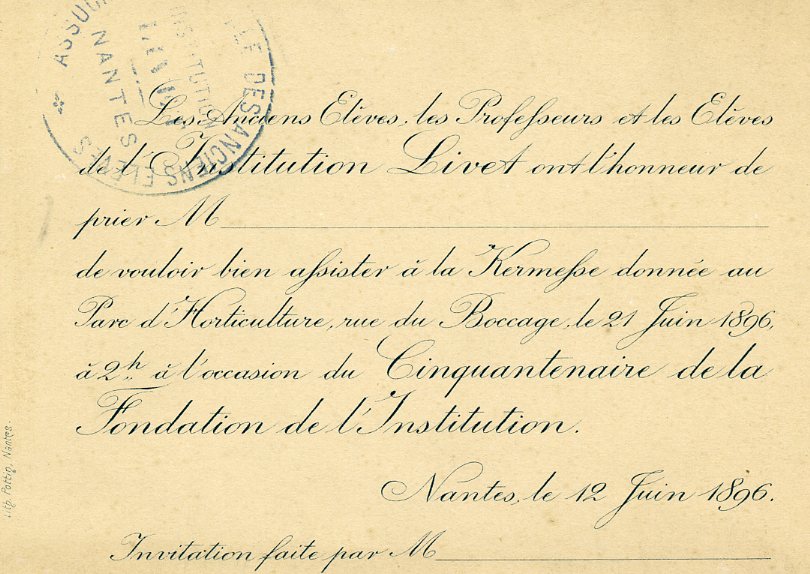 DES ANCIENS ELÈVES
INSTITUTION
NANTES
Les Anciens Elèves, les Professeurs et les Elèves
de l'Institution Livet ont l'honneur de
prier M
de vouloir bien assister à la Kermesse donnée au
Parc d'Horticulture, rue du Boccage, le 21 Juin 1896,
à 2h à l'occasion du Cinquantenaire de la
Fondation de l'Institution.
Nantes, le 12 Juin 1896.
Invitation faite par M
Nantes.